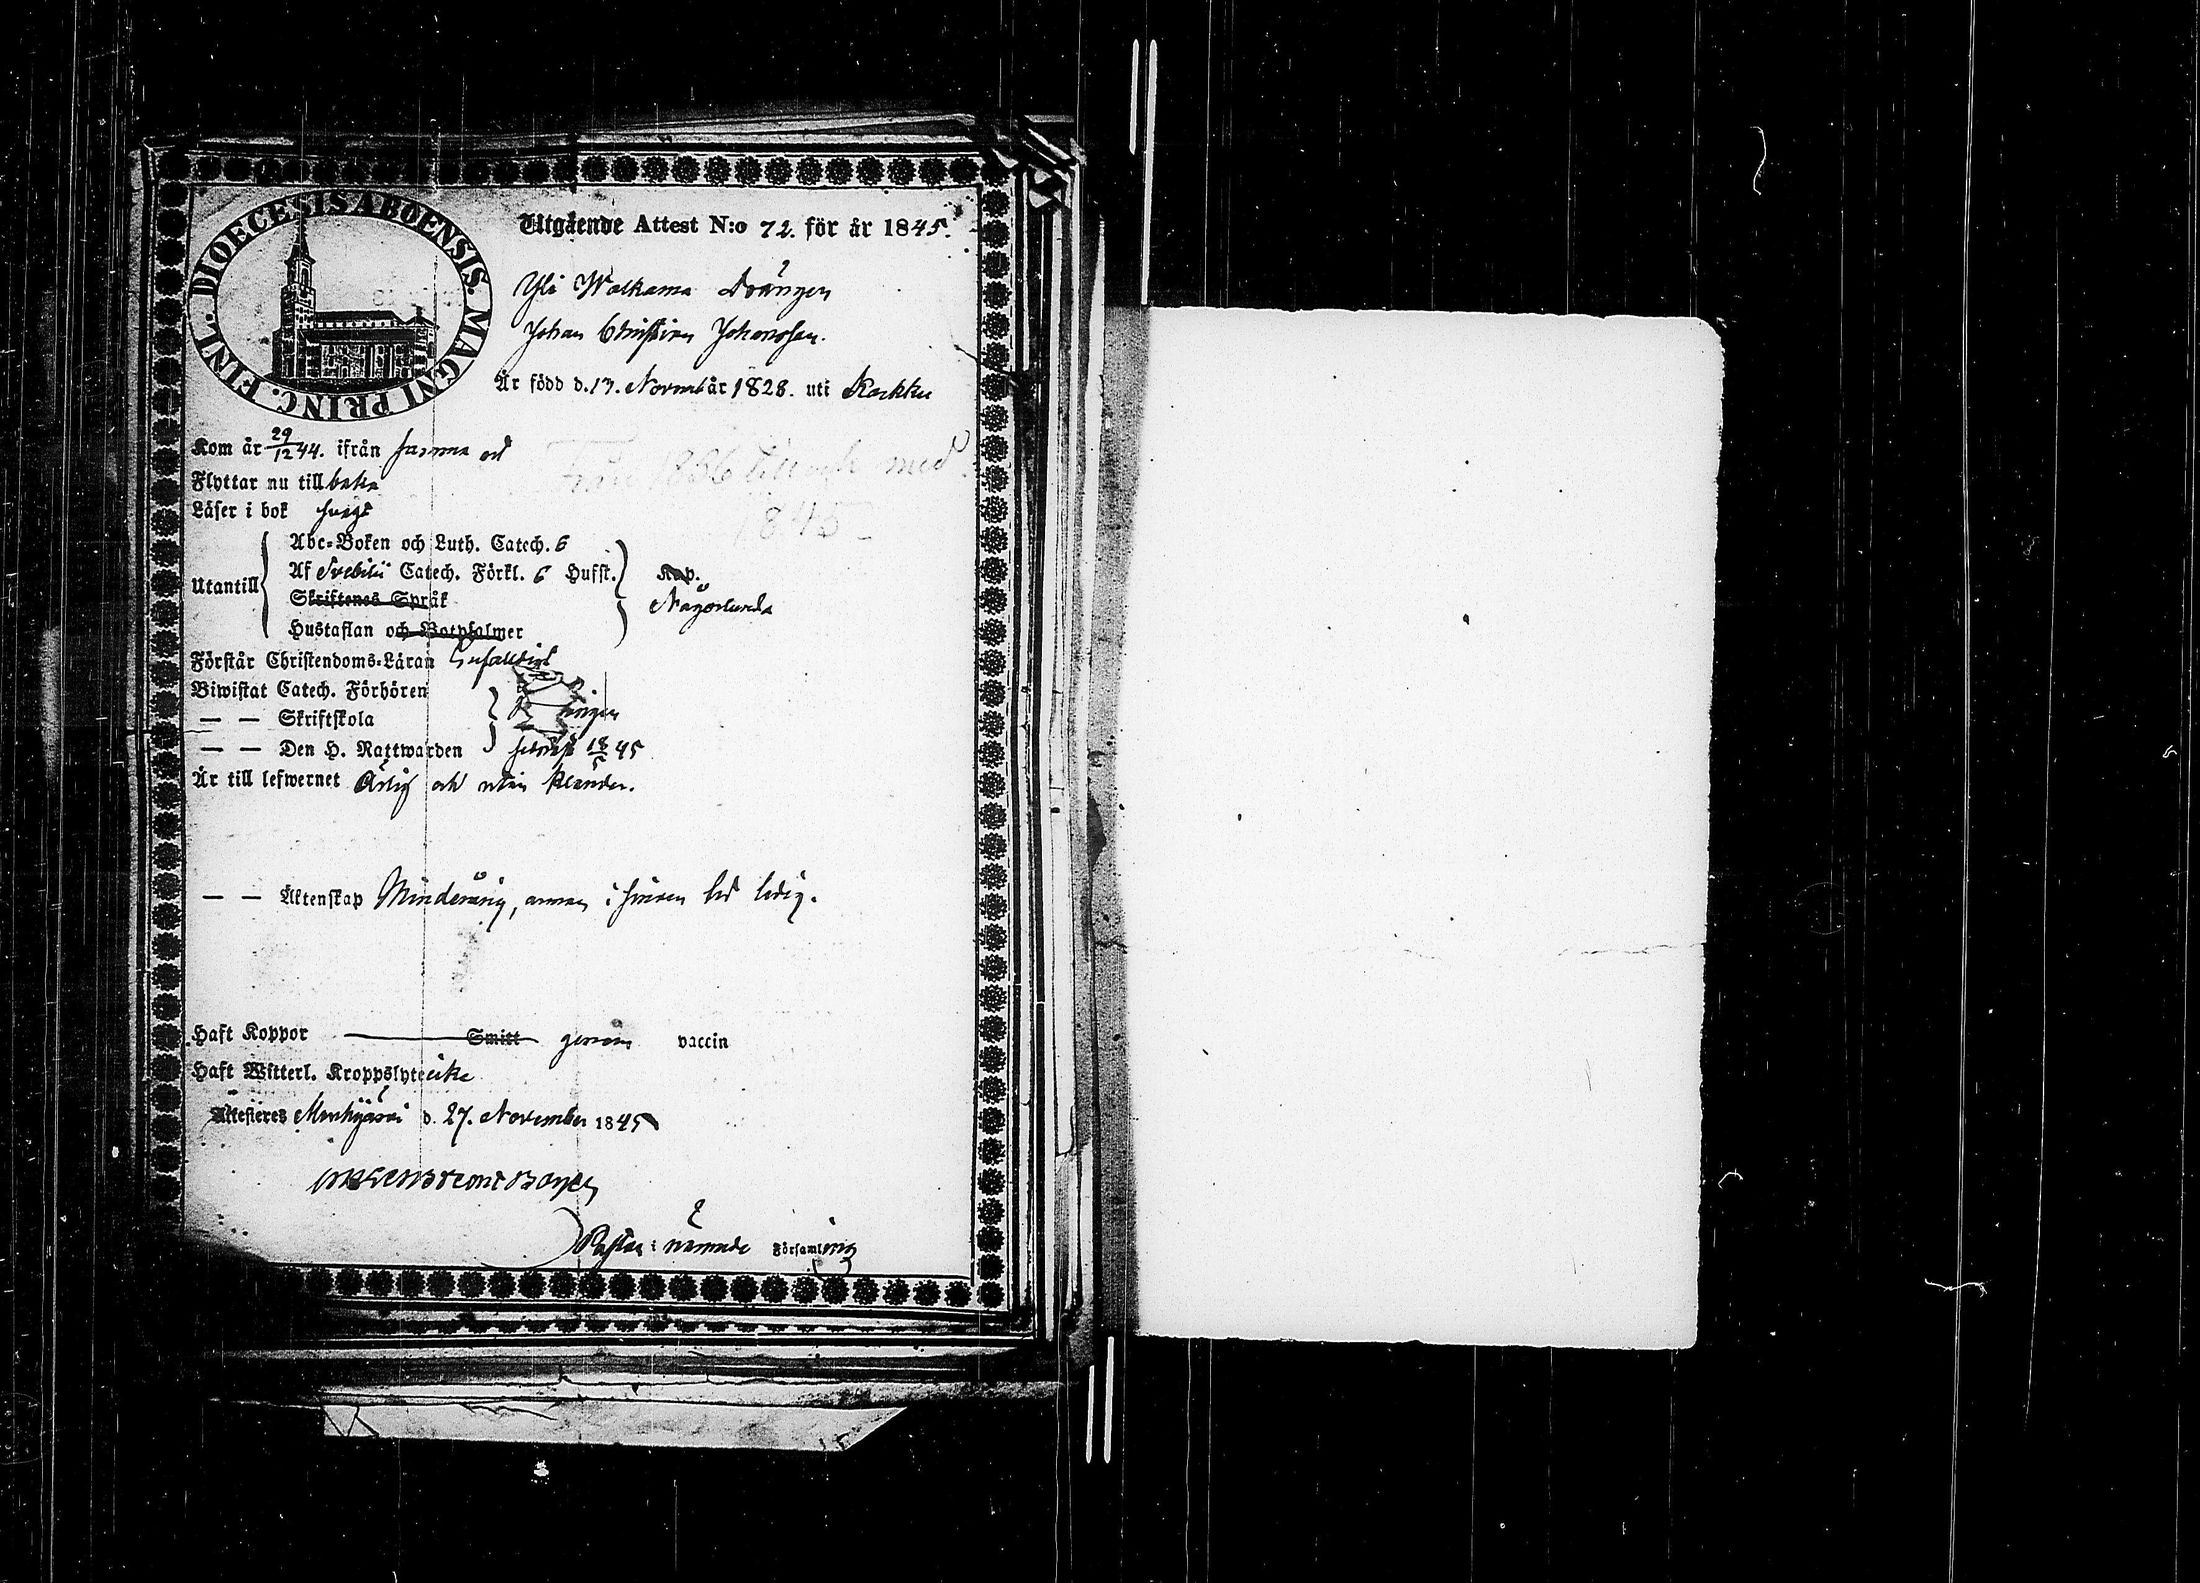 DIOECESIS ABOENSIS. MAGNI PRINC. FINL.
Utgående Attest N:o 72. för år 1845.
Yli Walkama Drängen
Johan Christian Johansson.
Är född d. 17. Novemb år 1828. uti Karkku
Kom år 29/12 44. ifrån samma ort
Från 1836 till och med
1845
Flyttar nu tillbaka
Läser i bok svagt
Abc-Boken och Luth. Catech. 6
Utantill Af Svebilii Catech. Förkl. 6 Husst. Kap.
Skriftenes Språk Någorlunda
Hustaflan och Botpsalmer
Förstår Christendoms-Läran Enfaldigt
Biwistat Catech. Förhören
— — Skriftskola
— — Den H. Nattwarden senast 18/5 45
Är till lefwernet Ärlig och utan klander.
— — Äktenskap Minderårig, annars i finsen led ledig.
Haft Koppor Smitt genom vaccin
Haft Witterl. Kroppslyte icke
Attesteres Mouhijärvi d. 27. November 1845
Pastor i nämnde Församling